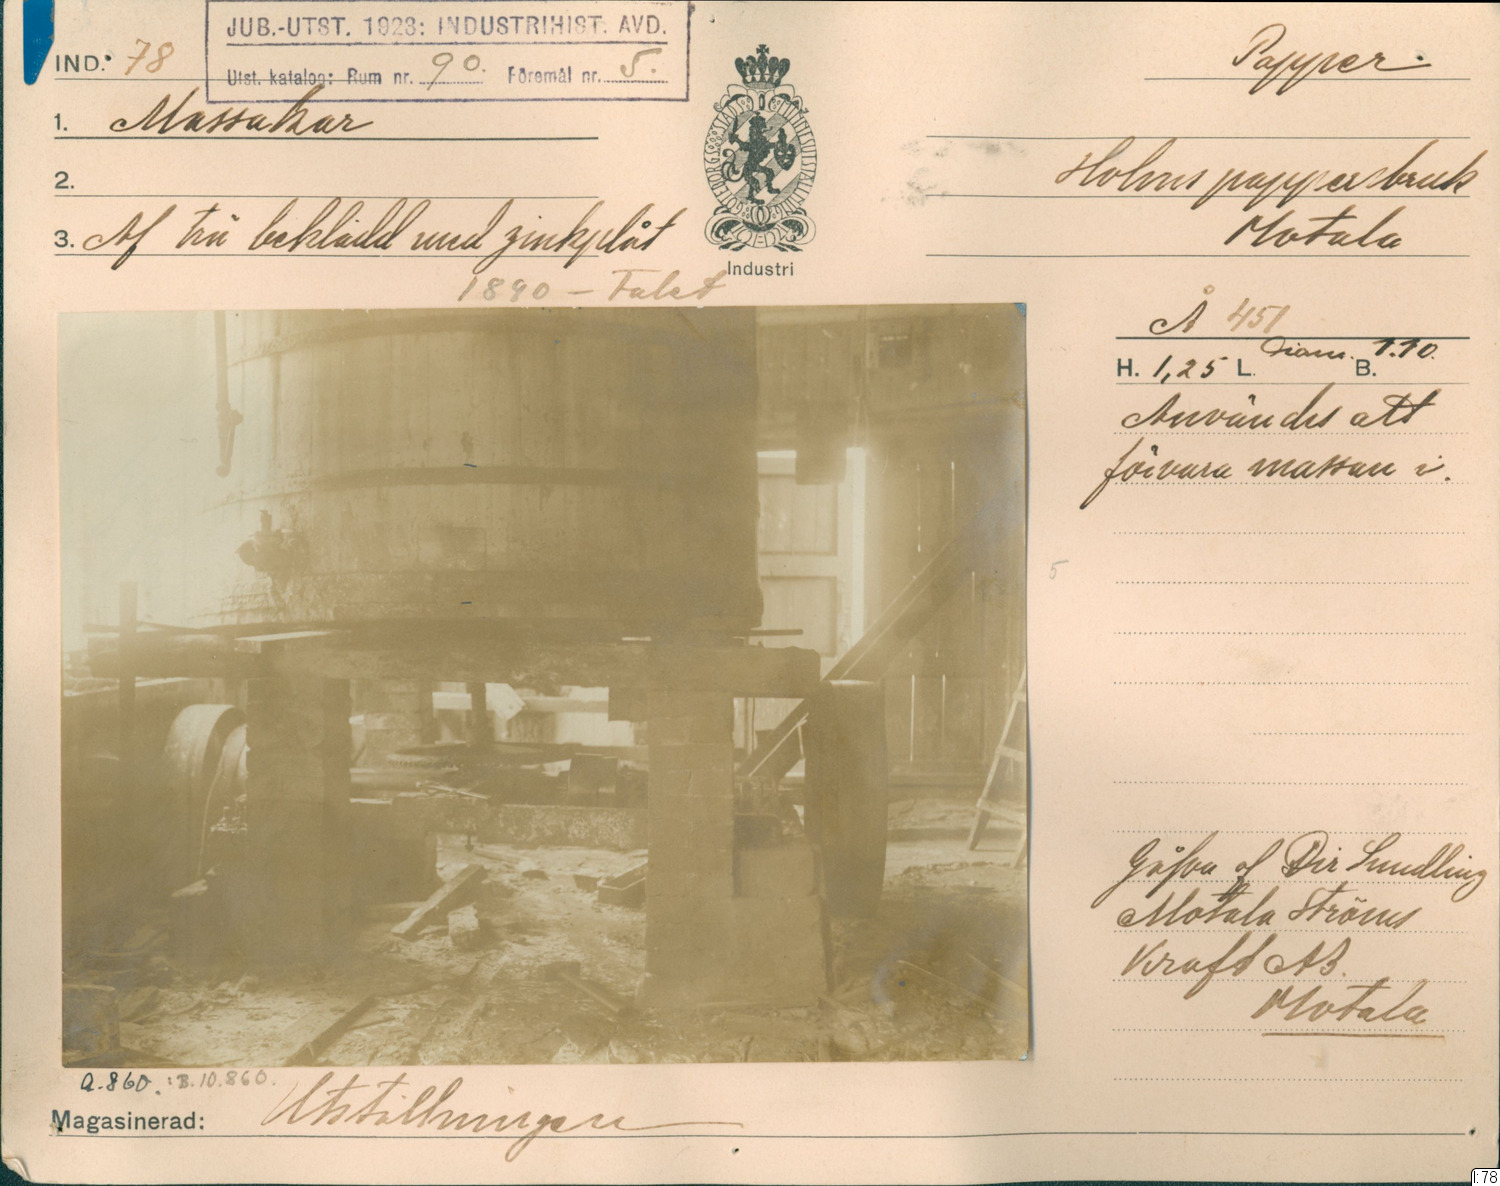 JUB.-UTST. 1923: INDUSTRIHIST. AVD.
Utst. katalog: Rum nr. 90. Föremål nr. 5.
IND. 78
Papper.
1. Massakar
2.
Holms pappersbruk
3. Af trä beklädd med zinkplåt
Motala
GÖTEBORGS STADS MINNESUTSTÄLLNING
Industri
1890 – Talet
Å 451
H. 1,25 L. Diam. B. 1.10.
Användes att
förvara massan i.
5
Gåfva af Dir Sundling
Motala Ströms
Kraft AB.
Motala
a. 860. : B. 10. 860.
Magasinerad: Utställningen
I:78